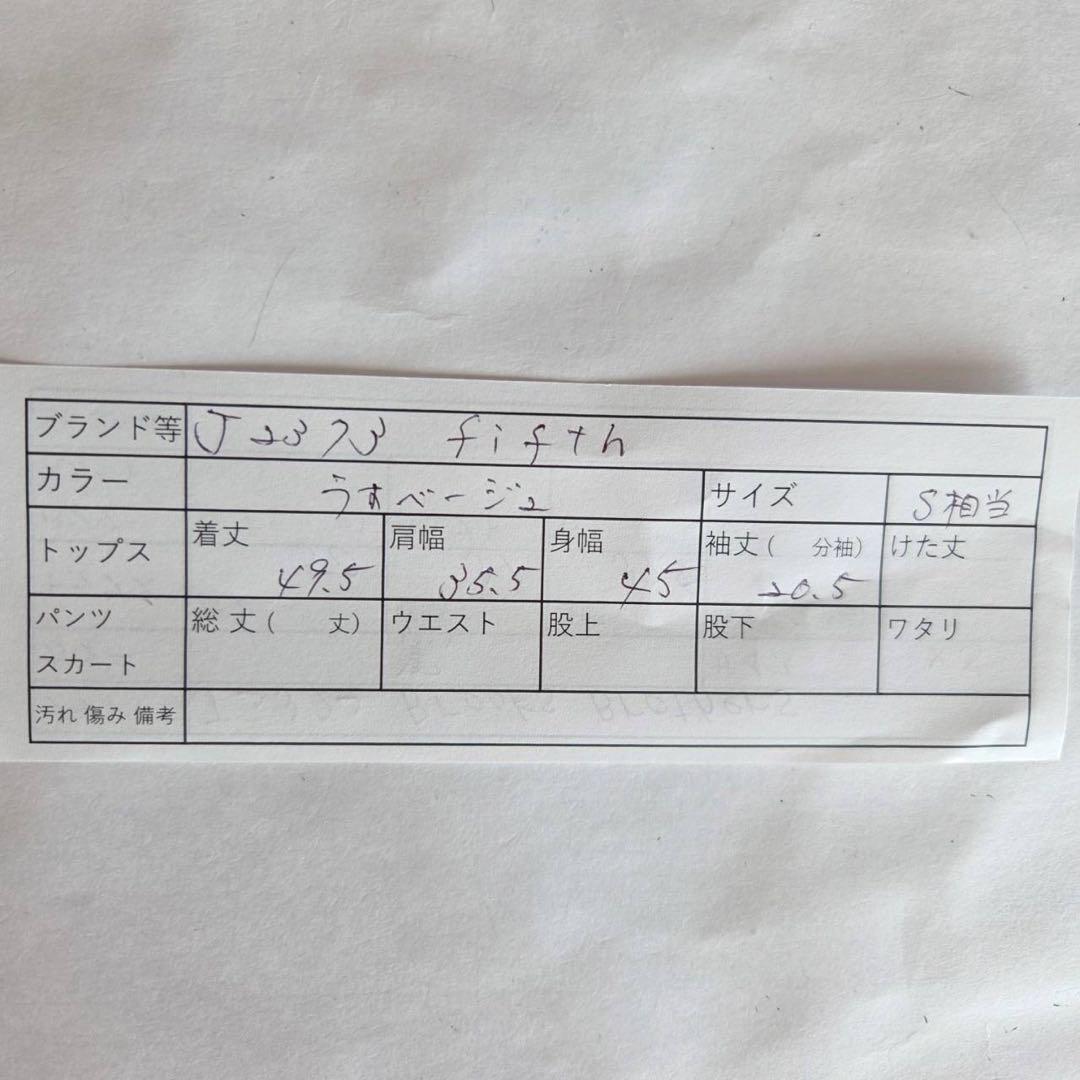 ブランド等 J2373 fifth
カラー うすベージュ サイズ S相当
トップス 着丈 49.5 肩幅 35.5 身幅 45 袖丈( 分袖) 20.5 けた丈
パンツ スカート 総丈( 丈) ウエスト 股上 股下 ワタリ
汚れ 傷み 備考